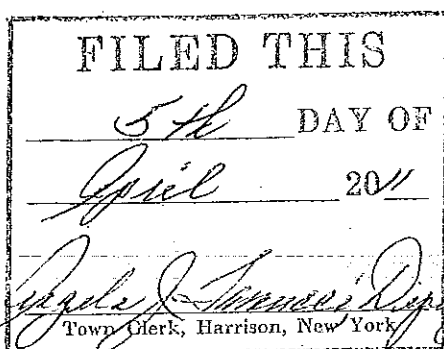 FILED THIS
5th DAY OF
April 2011
Angela J. 
Town Clerk, Harrison, New York